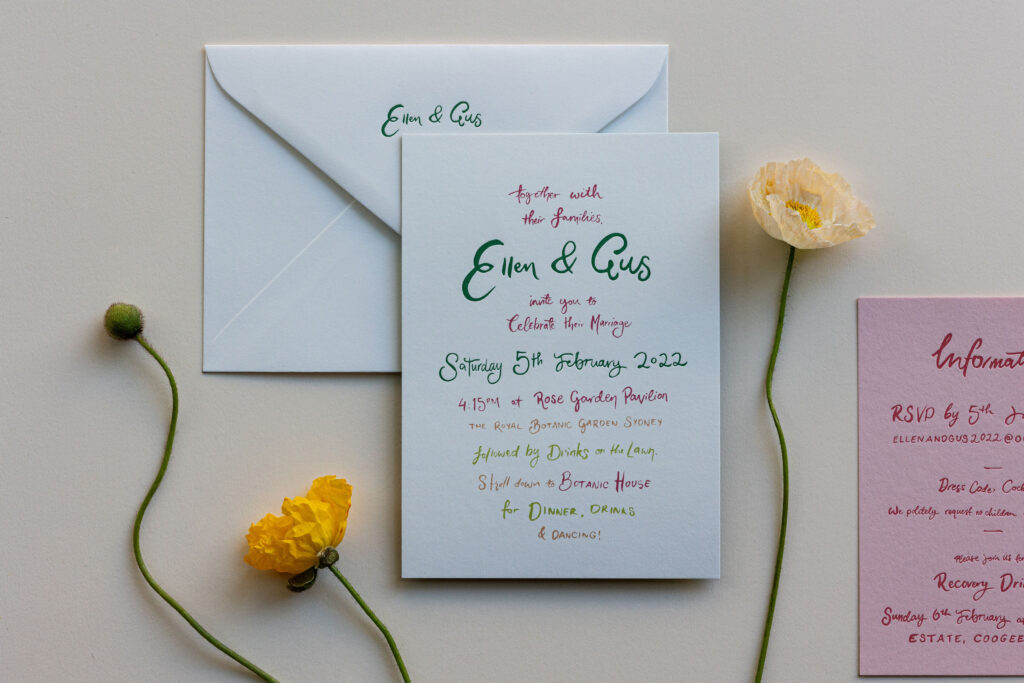 Ellen & Gus
together with
their families,
Ellen & Gus
invite you to
Celebrate their Marriage
Saturday 5th February 2022
4:15PM at Rose Garden Pavilion
THE ROYAL BOTANIC GARDEN, SYDNEY
followed by Drinks on the Lawn.
Stroll down to BOTANIC HOUSE
for DINNER, DRINKS
& DANCING!
Informat
RSVP by 5th J
ELLENANDGUS2022@O
Dress Code, Cock
We politely request no children
Please join us fo
Recovery Dri
Sunday 6th February a
ESTATE, COOGEE